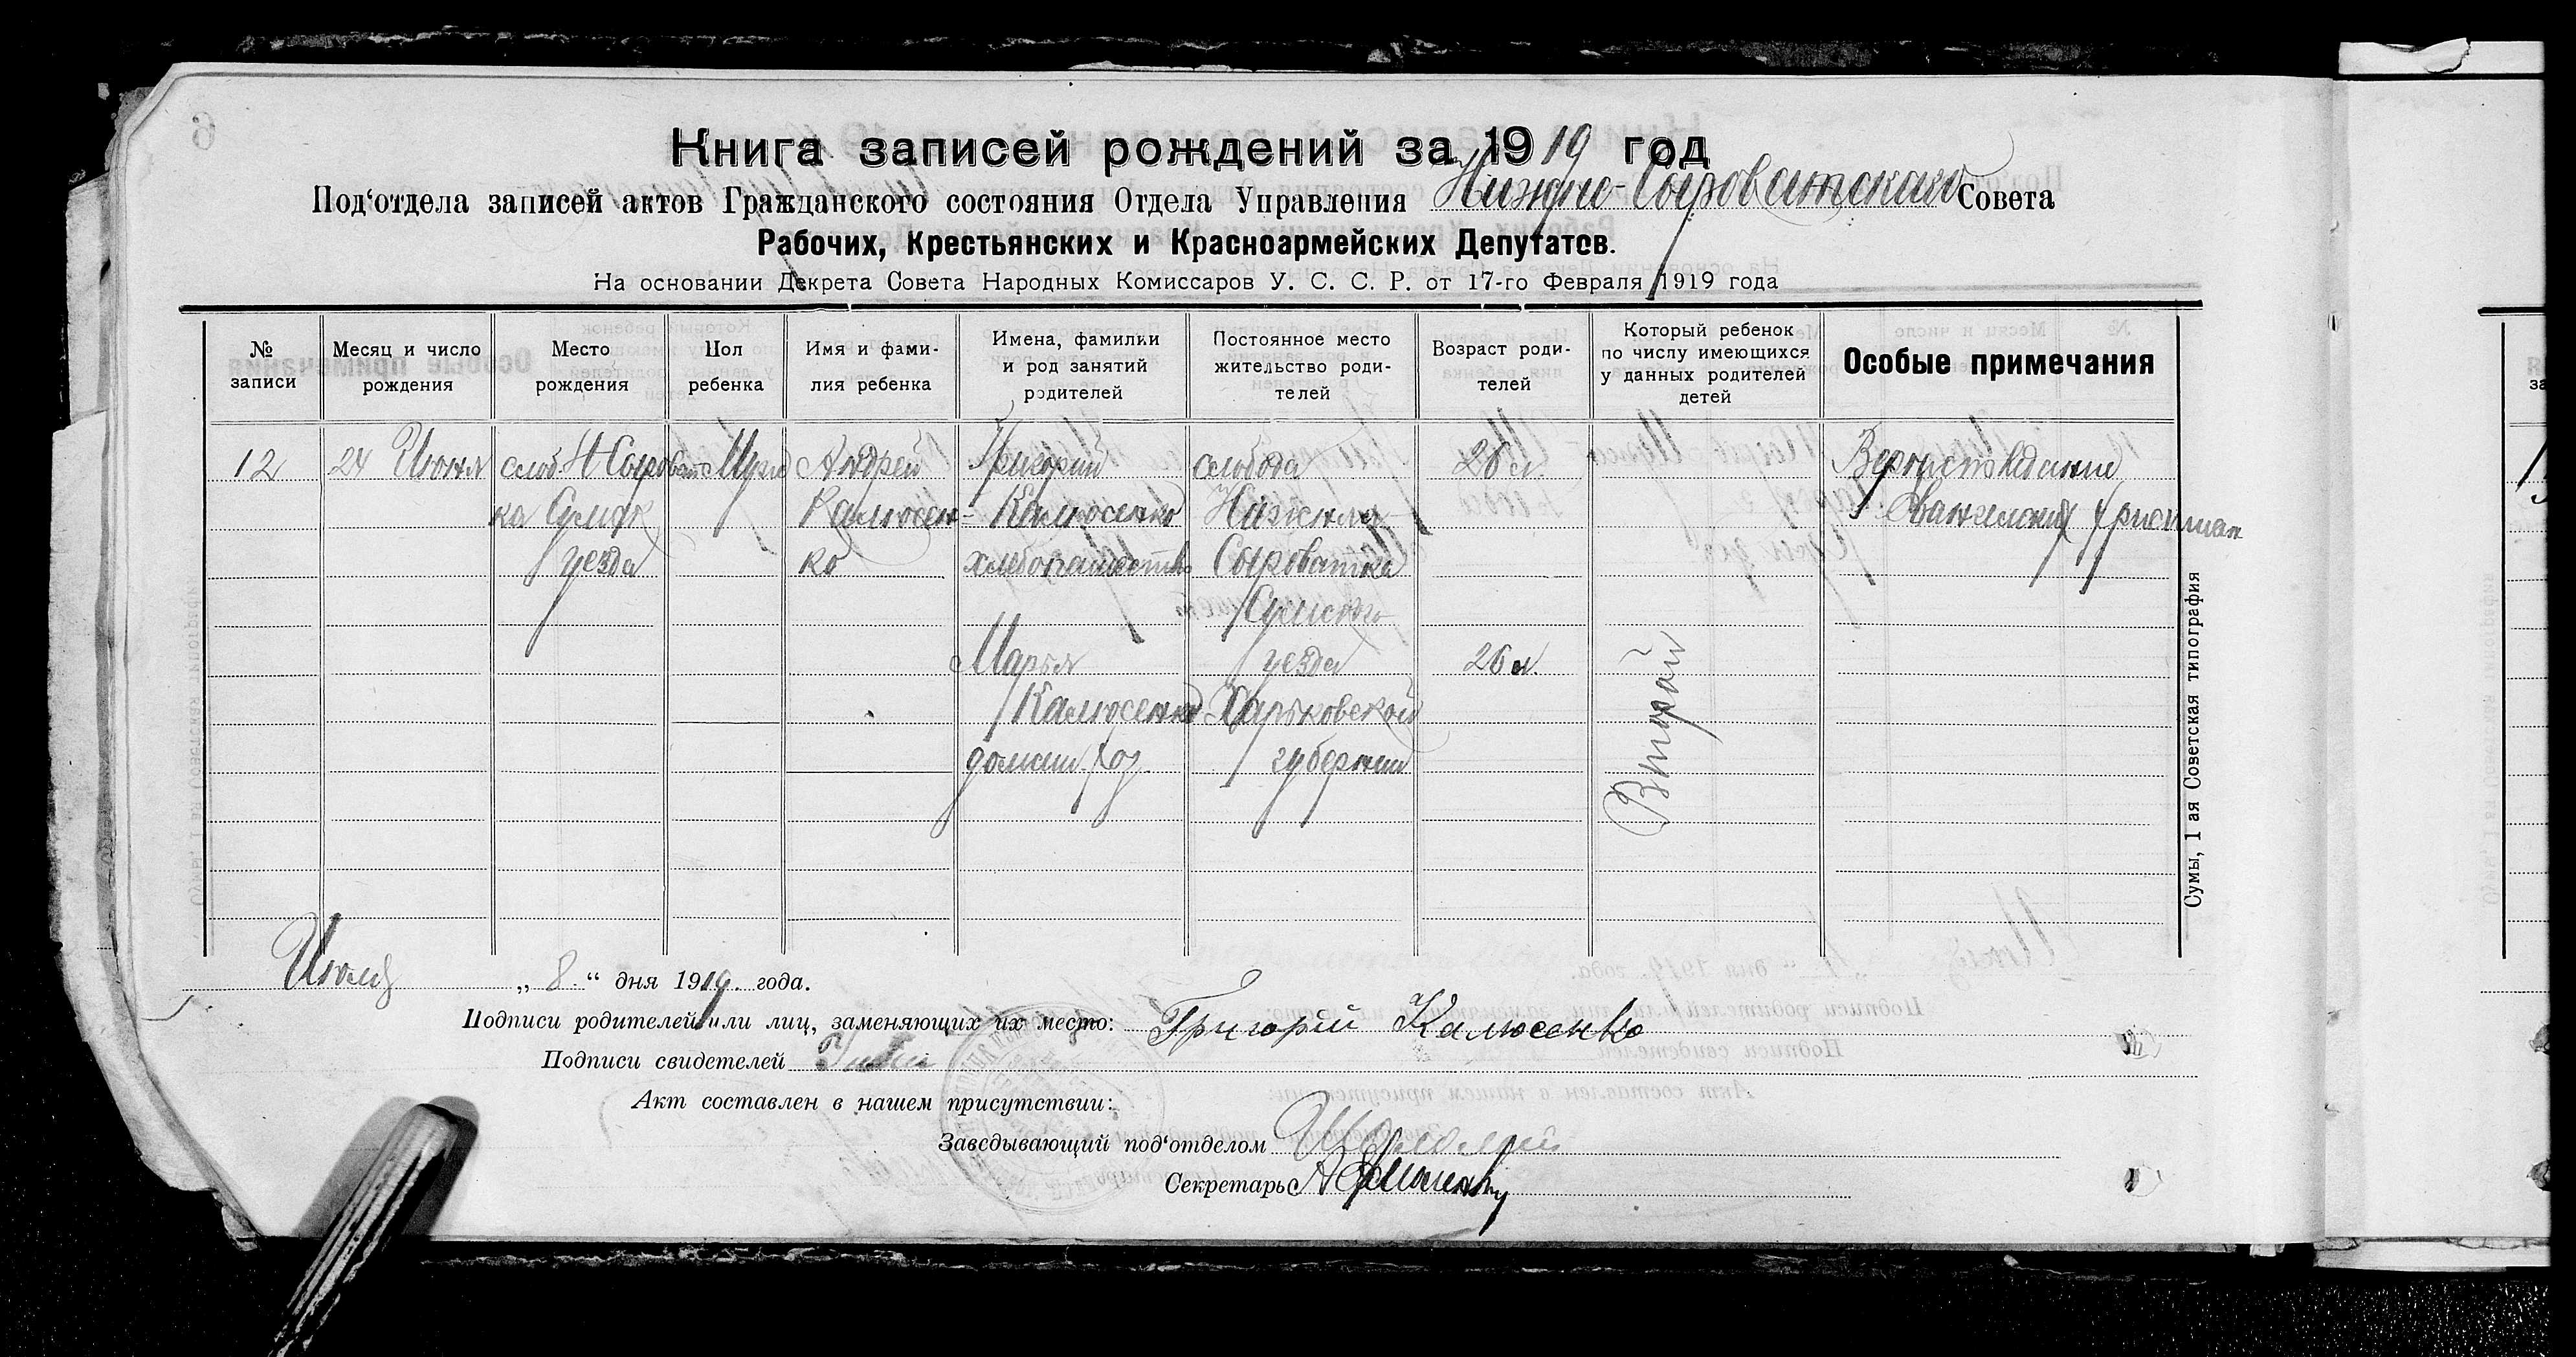 Книга записей рождений за 1919 год
Под‘отдела записей актов Гражданского состояния Отдела Управления Нижне-Сыроватского Совета
Рабочих, Крестьянских и Красноармейских Депутатов.
На основании Декрета Совета Народных Комиссаров У. С. С. Р. от 17-го Февраля 1919 года
№ записи
Месяц и число рождения
Место рождения
Пол ребенка
Имя и фами-
лия ребенка
Имена, фамилки
и род занятий
родителей
Постоянное место
жительство роди-
телей
Возраст роди-
телей
Который ребенок
по числу имеющихся
у данных родителей
детей
Особые примечания
12
24 Июня
слоб. Н Сыроват
ка Сумск
уезда
Муж
Андрей
Калюсен-
ко
Григорий
Калюсенко
хлебопашество
Марья
Калюсенко
домаш. хоз.
слобода
Нижняя
Сыроватка
Сумского
уезда
Харьковской
губернии
26 л.
26 л.
Второй
Вероисповедания
Евангельских христиан
Сумы, 1 ая Советская типография
Июля „ 8 “ дня 1919. года.
Подписи родителей или лиц, заменяющих их место: Григорій Калюсенко
Подписи свидетелей
Акт составлен в нашем присутствии:
Заведывающий под‘отделом
Секретарь